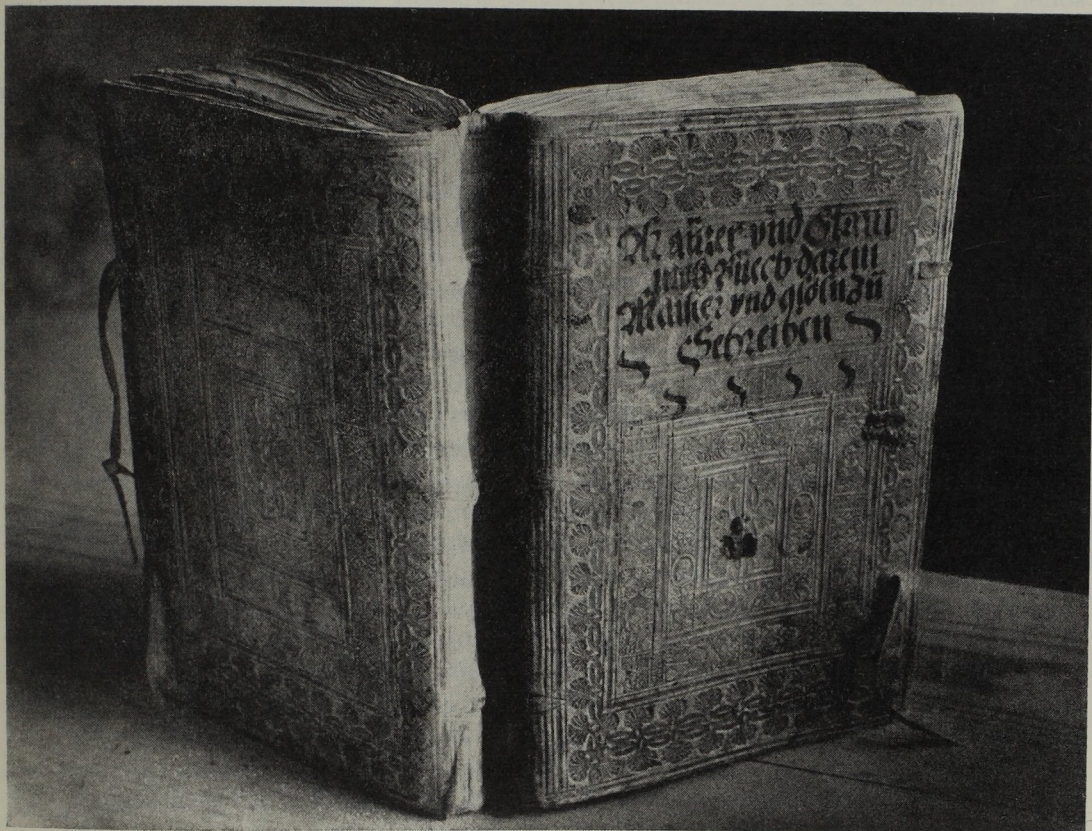 Maürer vnd Stain
metz Püech darein
Maister vnd gsöln zü
Schreiben